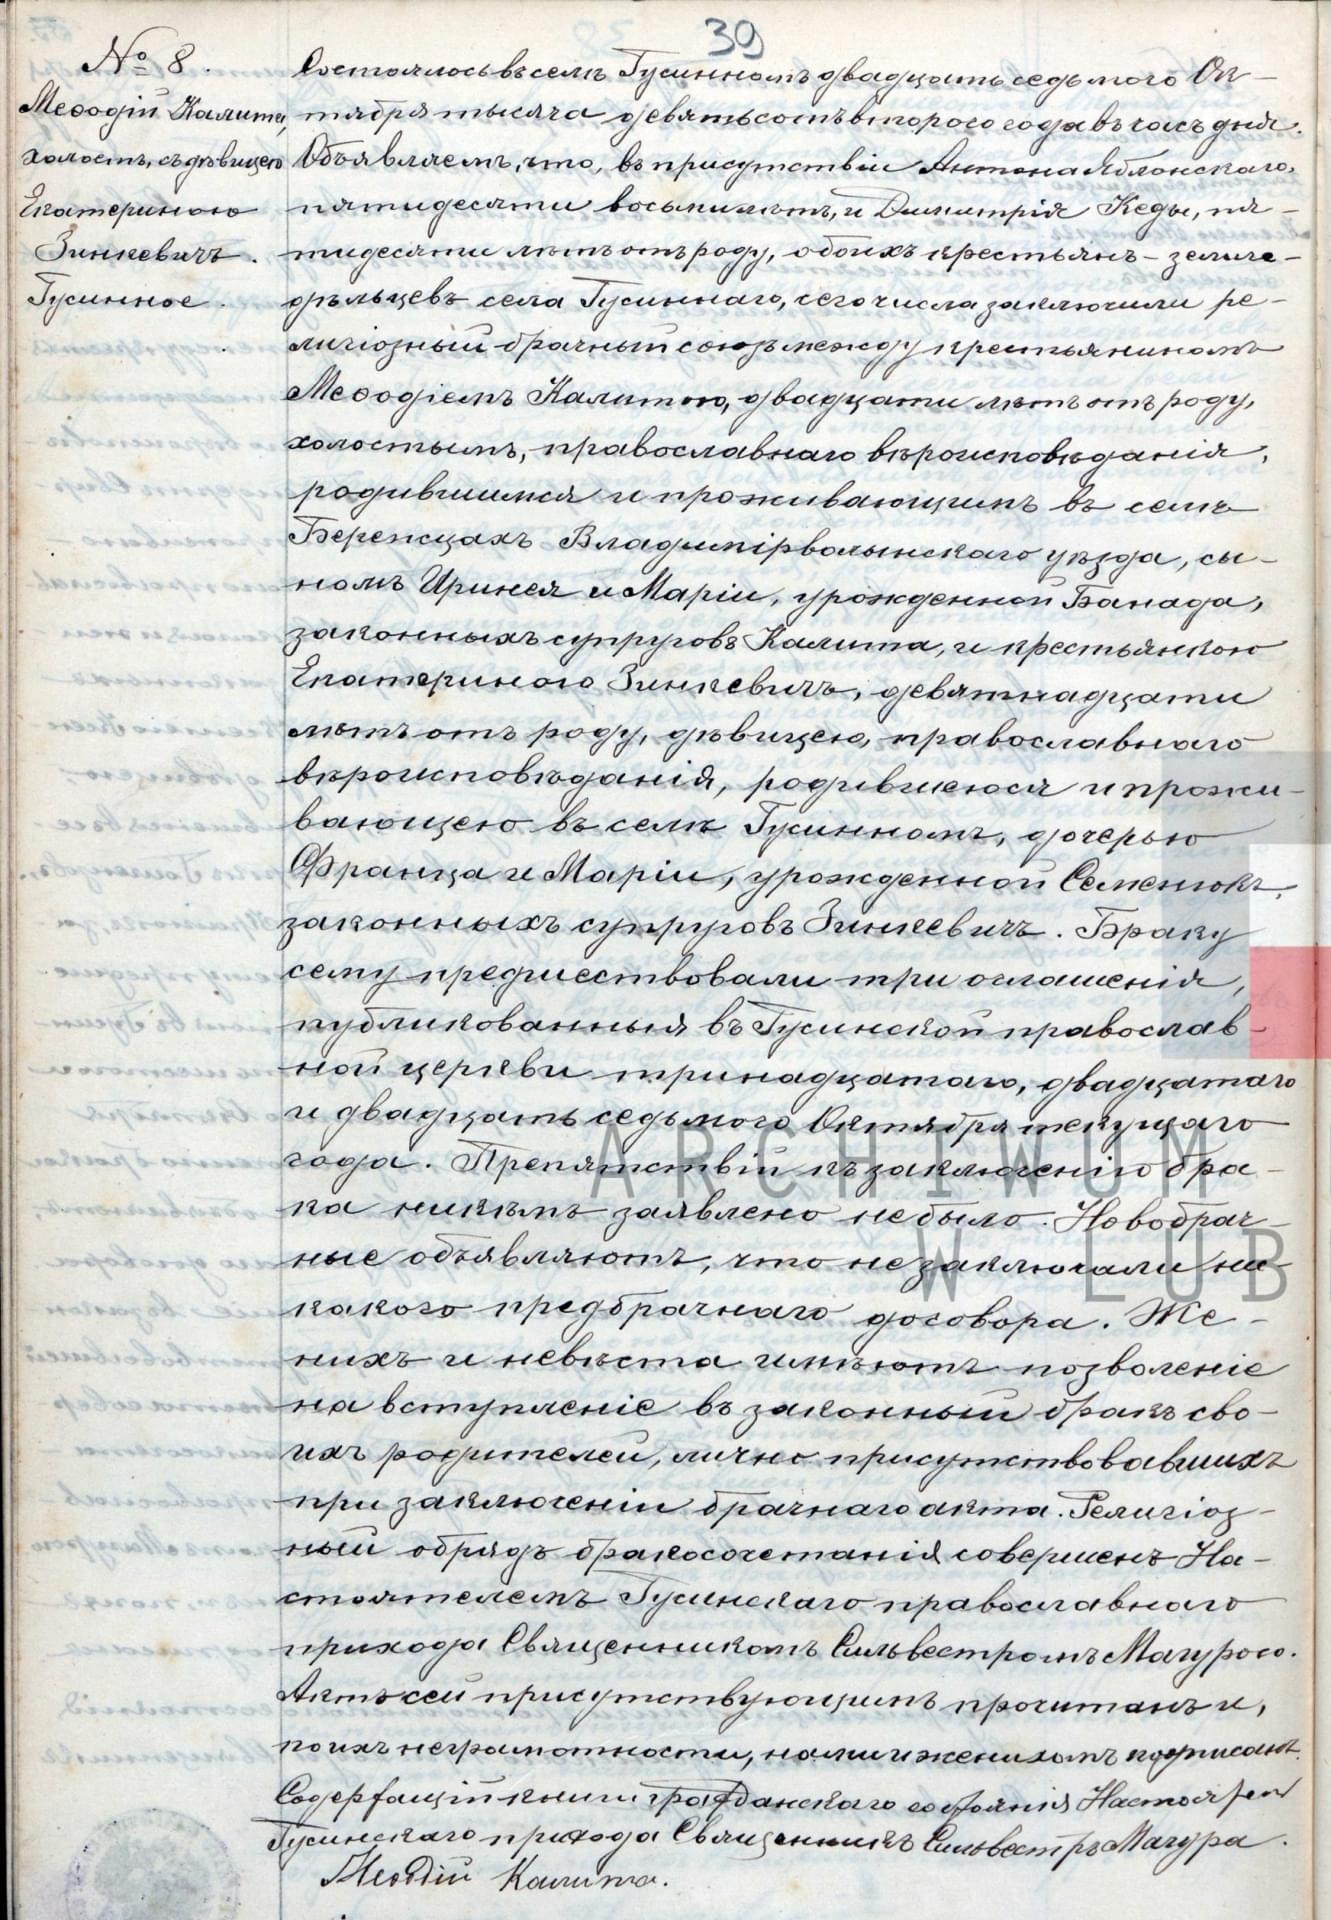 39
№ 8.
Меѳодій Калита,
холостъ, съ дѣвицею
Екатериною
Зинкевичъ.
Гусинное.
Состоялось въ селѣ Гусинномъ двадцать седьмого Ок-
тября тысяча девятьсотъ второго года въ часъ дня.
Объявляемъ, что, въ присутствіи Антона Яблонскаго,
пятидесяти восьми лѣтъ, и Димитрія Кеды, пя-
тидесяти лѣтъ отъ роду, обоихъ крестьянъ-земле-
дѣльцевъ села Гусиннаго, сего числа заключили ре-
лигіозный брачный союзъ между крестьяниномъ
Меѳодіемъ Калитою, двадцати лѣтъ отъ роду,
холостымъ, православнаго вѣроисповѣданія,
родившимся и проживающимъ въ селѣ
Бережцахъ Владимірволынскаго уѣзда, сы-
номъ Иринея и Маріи, урожденной Банада,
законныхъ супруговъ Калита, и крестьянкою
Екатериною Зинкевичъ, девятнадцати
лѣтъ отъ роду, дѣвицею, православнаго
вѣроисповѣданія, родившеюся и прожи-
вающею въ селѣ Гусинномъ, дочерью
Франца и Маріи, урожденной Семенюкъ,
законныхъ супруговъ Зинкевичъ. Браку
сему предшествовали три оглашенія,
публикованныя въ Гусинской православ-
ной церкви тринадцатаго, двадцатаго
и двадцать седьмого Октября текущаго
года. Препятствій къ заключенію бра-
ка никѣмъ заявлено не было. Новобрач-
ные объявляютъ, что не заключали ни-
какого предбрачнаго договора. Же-
нихъ и невѣста имѣютъ позволеніе
на вступленіе въ законный бракъ сво-
ихъ родителей, лично присутствовавшихъ
при заключеніи брачнаго акта. Религіоз-
ный обрядъ бракосочетанія совершенъ На-
стоятелемъ Гусинскаго православнаго
прихода Священникомъ Сильвестромъ Магурою.
Актъ сей присутствующимъ прочитанъ и,
по ихъ неграмотности, нами и женихомъ подписанъ.
Содержащій книги гражданскаго состоянія Настоятель
Гусинскаго прихода Священникъ Сильвестръ Магура.
Меѳодій Калита.
ARCHIWUM
W LUB